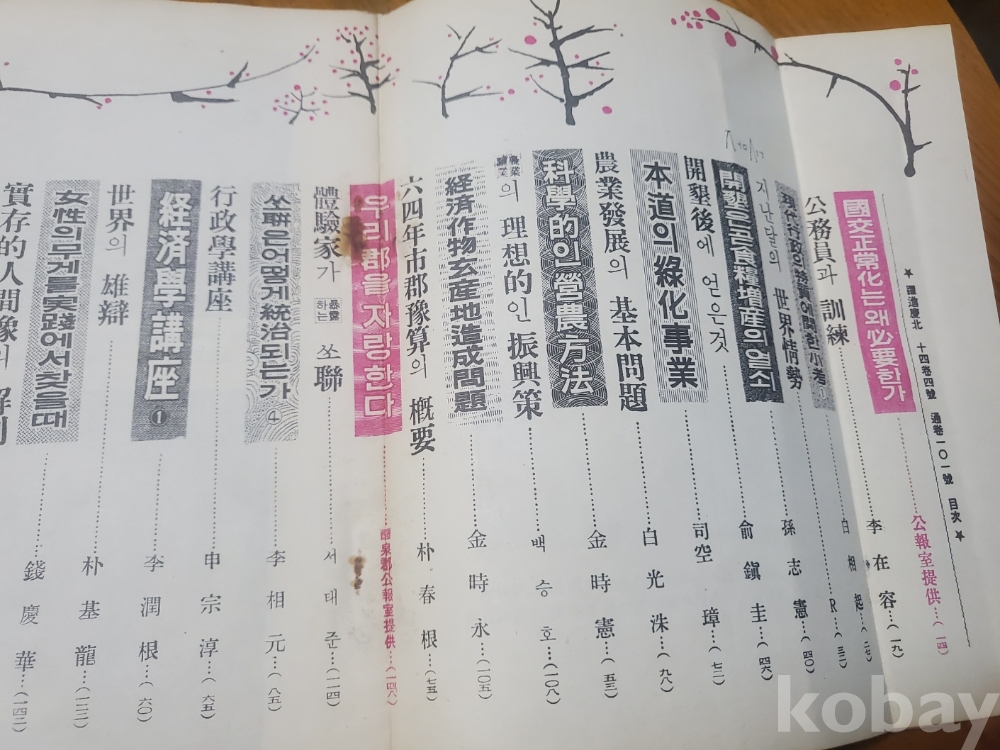 ★ 慶北 十四卷四號 通卷一〇一號 目次 ★
國交正常化는 왜 必要한가……公報室提供…(一四)
公務員과 訓練……李在容…(一九)
現代行政의 에 關한 小考……白相起…(二七)
지난달의 世界情勢……R…(三二)
開墾은 곧 食糧增産의 열쇠……孫志憲…(四〇)
開墾後에 얻은것……兪鎭圭…(四六)
本道의 綠化事業……司空璋…(七二)
農業發展의 基本問題……白光洙…(九八)
科學的인 營農方法……金時憲…(五三)
의 理想的인 振興策……백승호…(一〇八)
経済作物玄産地造成問題……金時永…(一〇五)
六四年市郡豫算의 槪要……朴春根…(七五)
우리郡을 자랑한다……醴泉郡公報室提供…(一四六)
體驗家가 暴露하는 쏘聯……서태준…(一一四)
쏘聯은 어떻게 統治되는가 ④……李相元…(八五)
行政學講座……申宗淳…(六五)
経済學講座 ①……李潤根…(六〇)
世界의 雄辯……朴基龍…(一三二)
女性의 무게를 実踐에서 찾을때……錢慶華…(一四二)
實存的人間像의 解
kobay